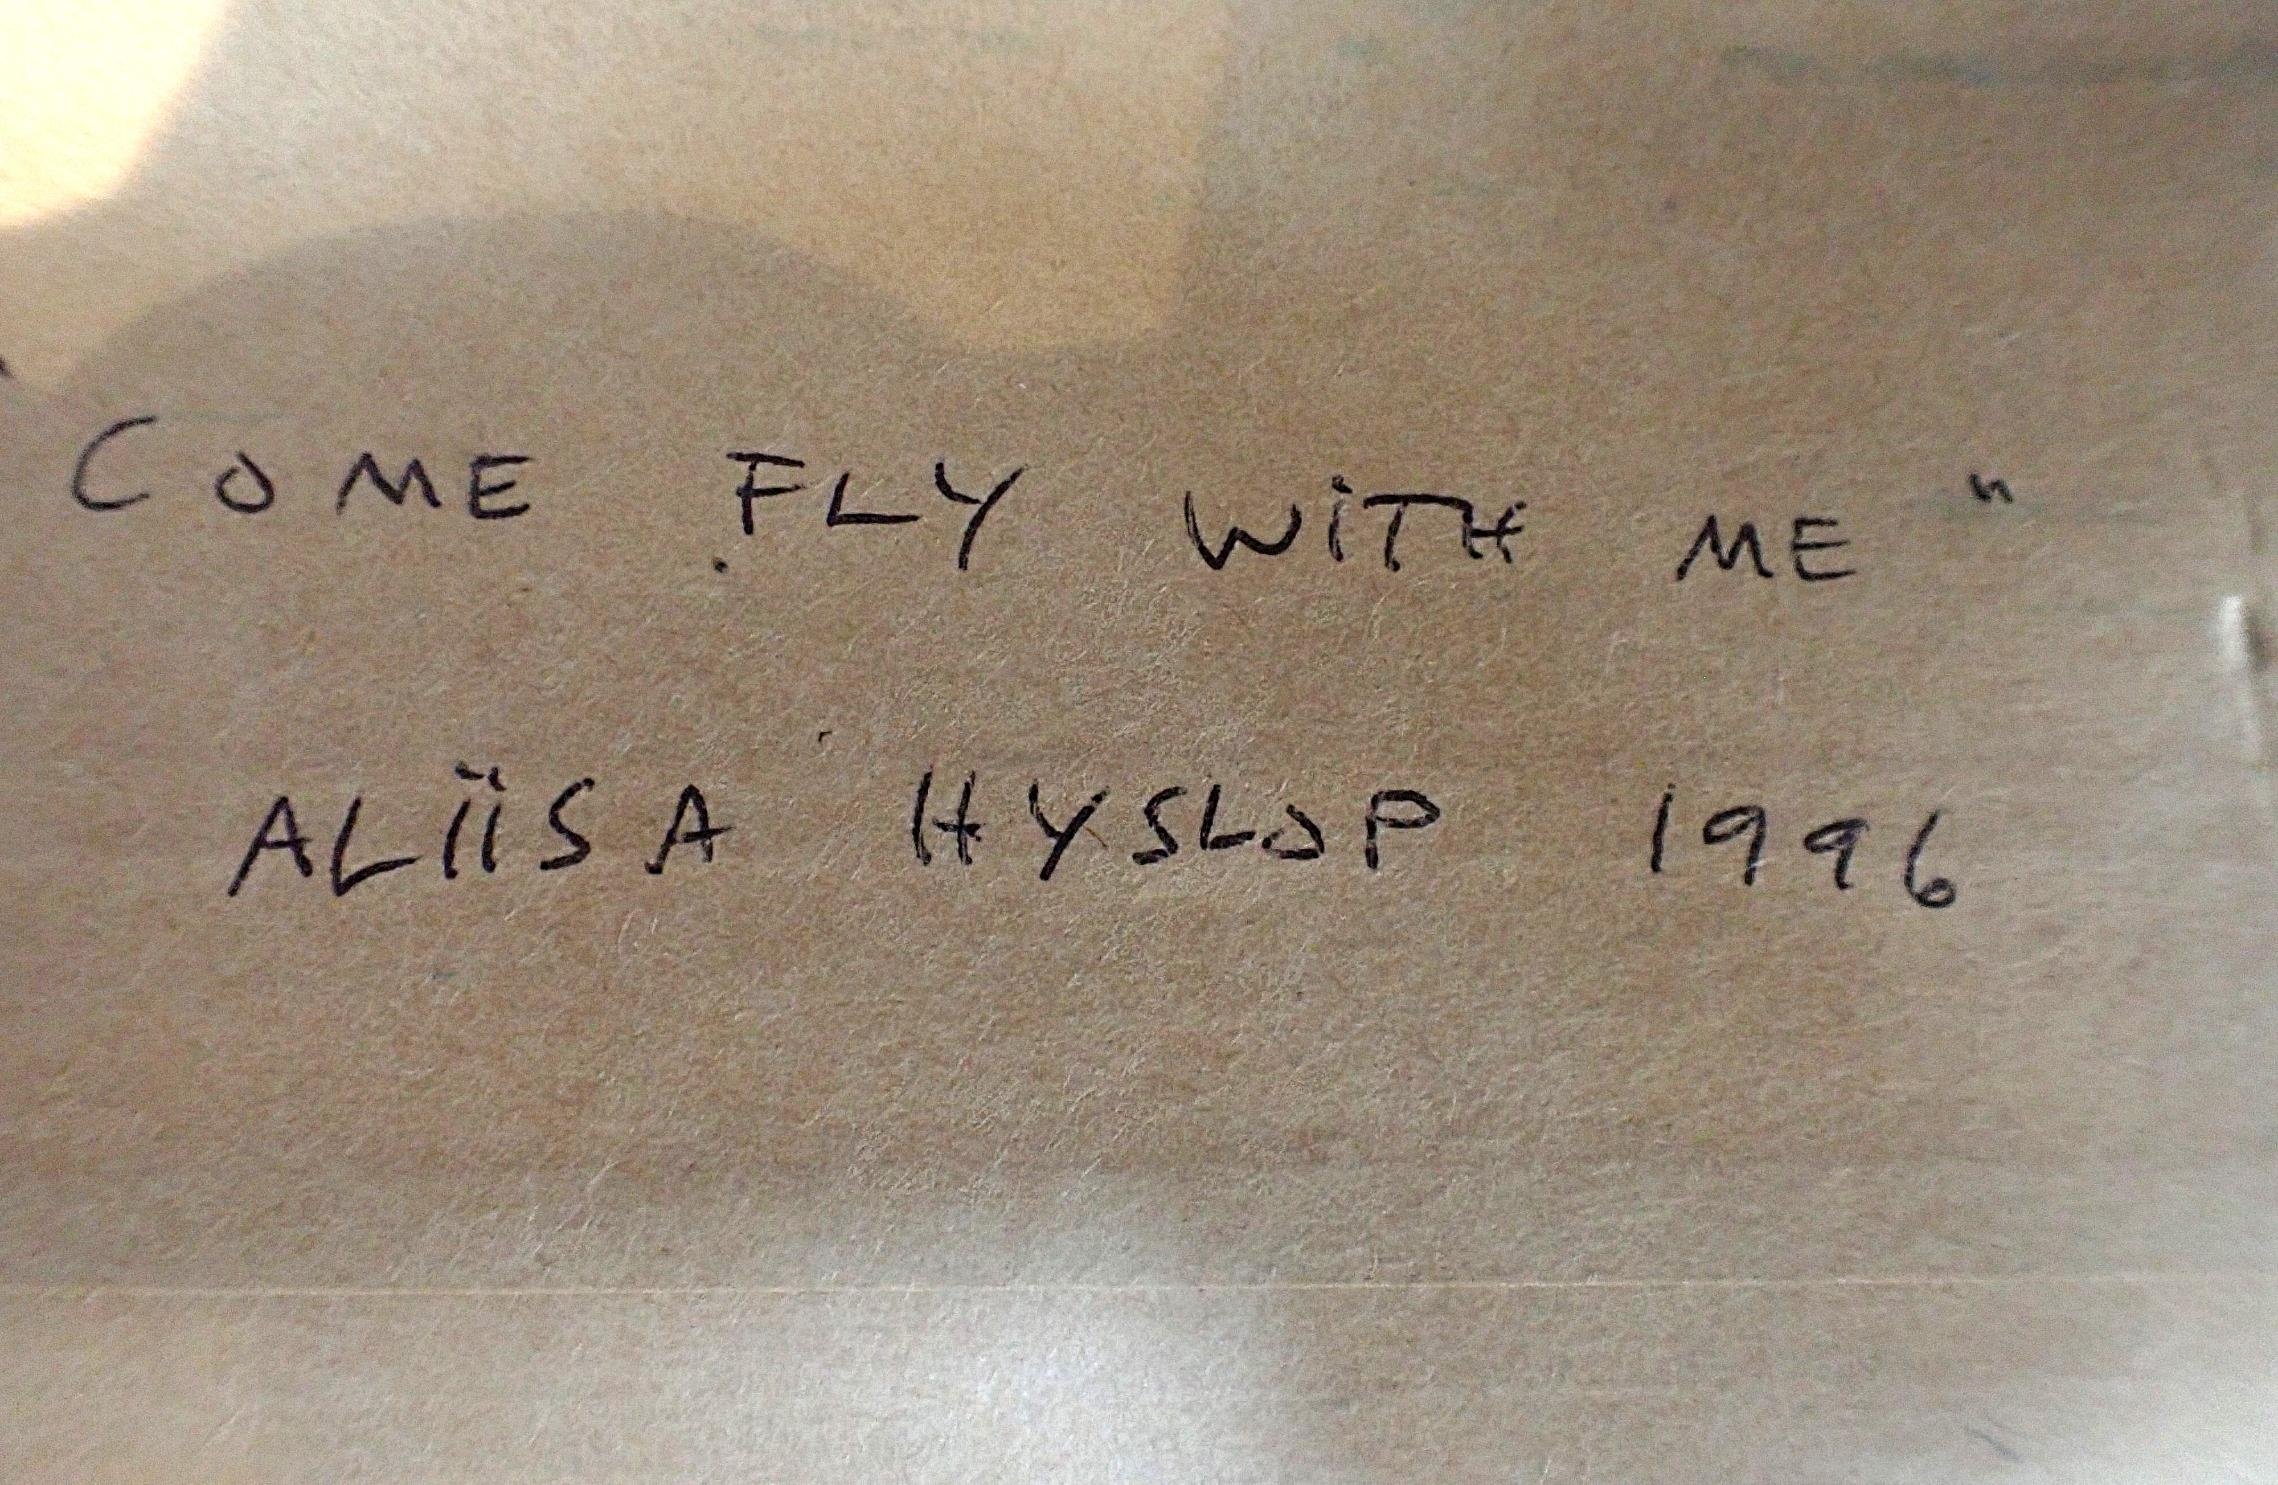 "COME FLY WiTH ME"
ALiiSA HYSLOP 1996